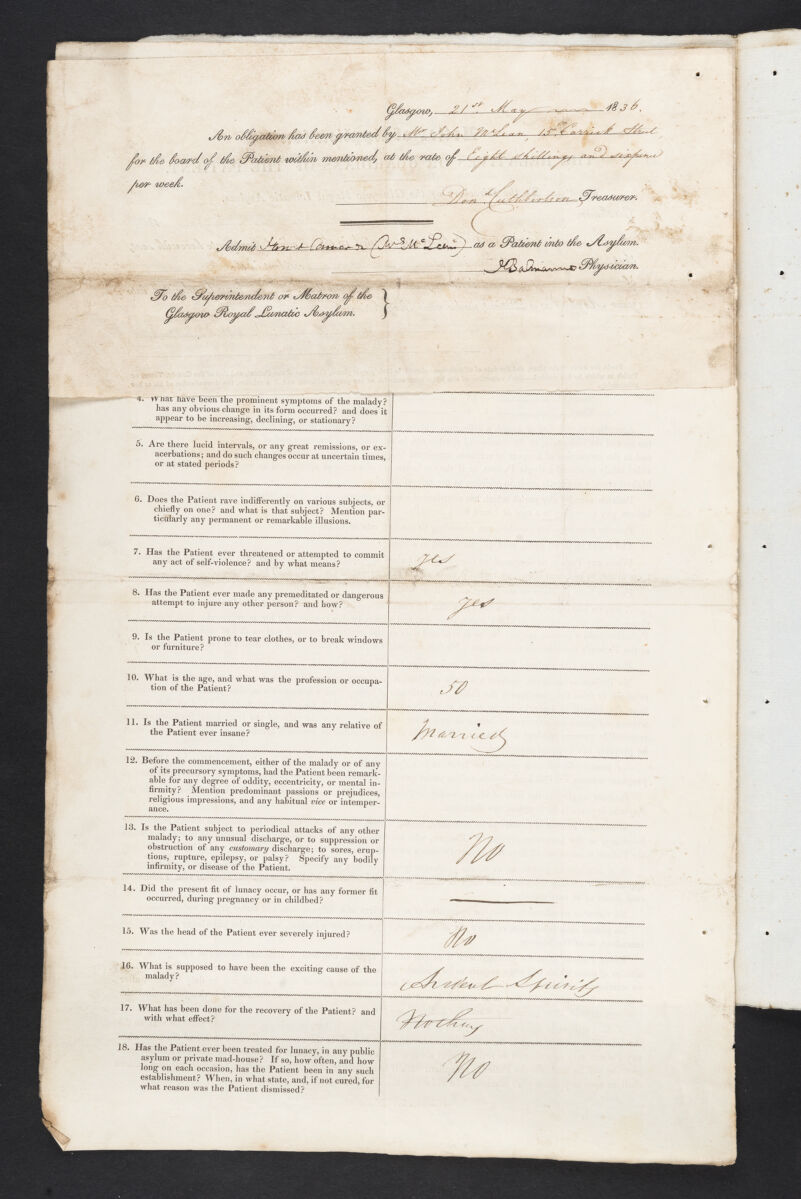 Glasgow, 21st May 1836.
An obligation has been granted by Mr John McLean, 15 Carrick Street
for the board of the Patient within mentioned, at the rate of Eight Shillings and sixpence
per week.
Don. Cuthbertson Treasurer.
Admit (Mrs McLean) as a Patient into the Asylum.
Balmanno Physician.
To the Superintendent or Matron of the
Glasgow Royal Lunatic Asylum.
4. What have been the prominent symptoms of the malady?
has any obvious change in its form occurred? and does it
appear to be increasing, declining, or stationary?
5. Are there lucid intervals, or any great remissions, or ex-
acerbations; and do such changes occur at uncertain times,
or at stated periods?
6. Does the Patient rave indifferently on various subjects, or
chiefly on one? and what is that subject? Mention par-
ticularly any permanent or remarkable illusions.
7. Has the Patient ever threatened or attempted to commit
any act of self-violence? and by what means?
yes
8. Has the Patient ever made any premeditated or dangerous
attempt to injure any other person? and how?
yes
9. Is the Patient prone to tear clothes, or to break windows
or furniture?
10. What is the age, and what was the profession or occupa-
tion of the Patient?
50
11. Is the Patient married or single, and was any relative of
the Patient ever insane?
Married
12. Before the commencement, either of the malady or of any
of its precursory symptoms, had the Patient been remark-
able for any degree of oddity, eccentricity, or mental in-
firmity? Mention predominant passions or prejudices,
religious impressions, and any habitual vice or intemper-
ance.
13. Is the Patient subject to periodical attacks of any other
malady; to any unusual discharge, or to suppression or
obstruction of any customary discharge; to sores, erup-
tions, rupture, epilepsy, or palsy? Specify any bodily
infirmity, or disease of the Patient.
No
14. Did the present fit of lunacy occur, or has any former fit
occurred, during pregnancy or in childbed?
15. Was the head of the Patient ever severely injured?
No
16. What is supposed to have been the exciting cause of the
malady?
Ardent Spirits
17. What has been done for the recovery of the Patient? and
with what effect?
Nothing
18. Has the Patient ever been treated for lunacy, in any public
asylum or private mad-house? If so, how often, and how
long on each occasion, has the Patient been in any such
establishment? When, in what state, and, if not cured, for
what reason was the Patient dismissed?
No